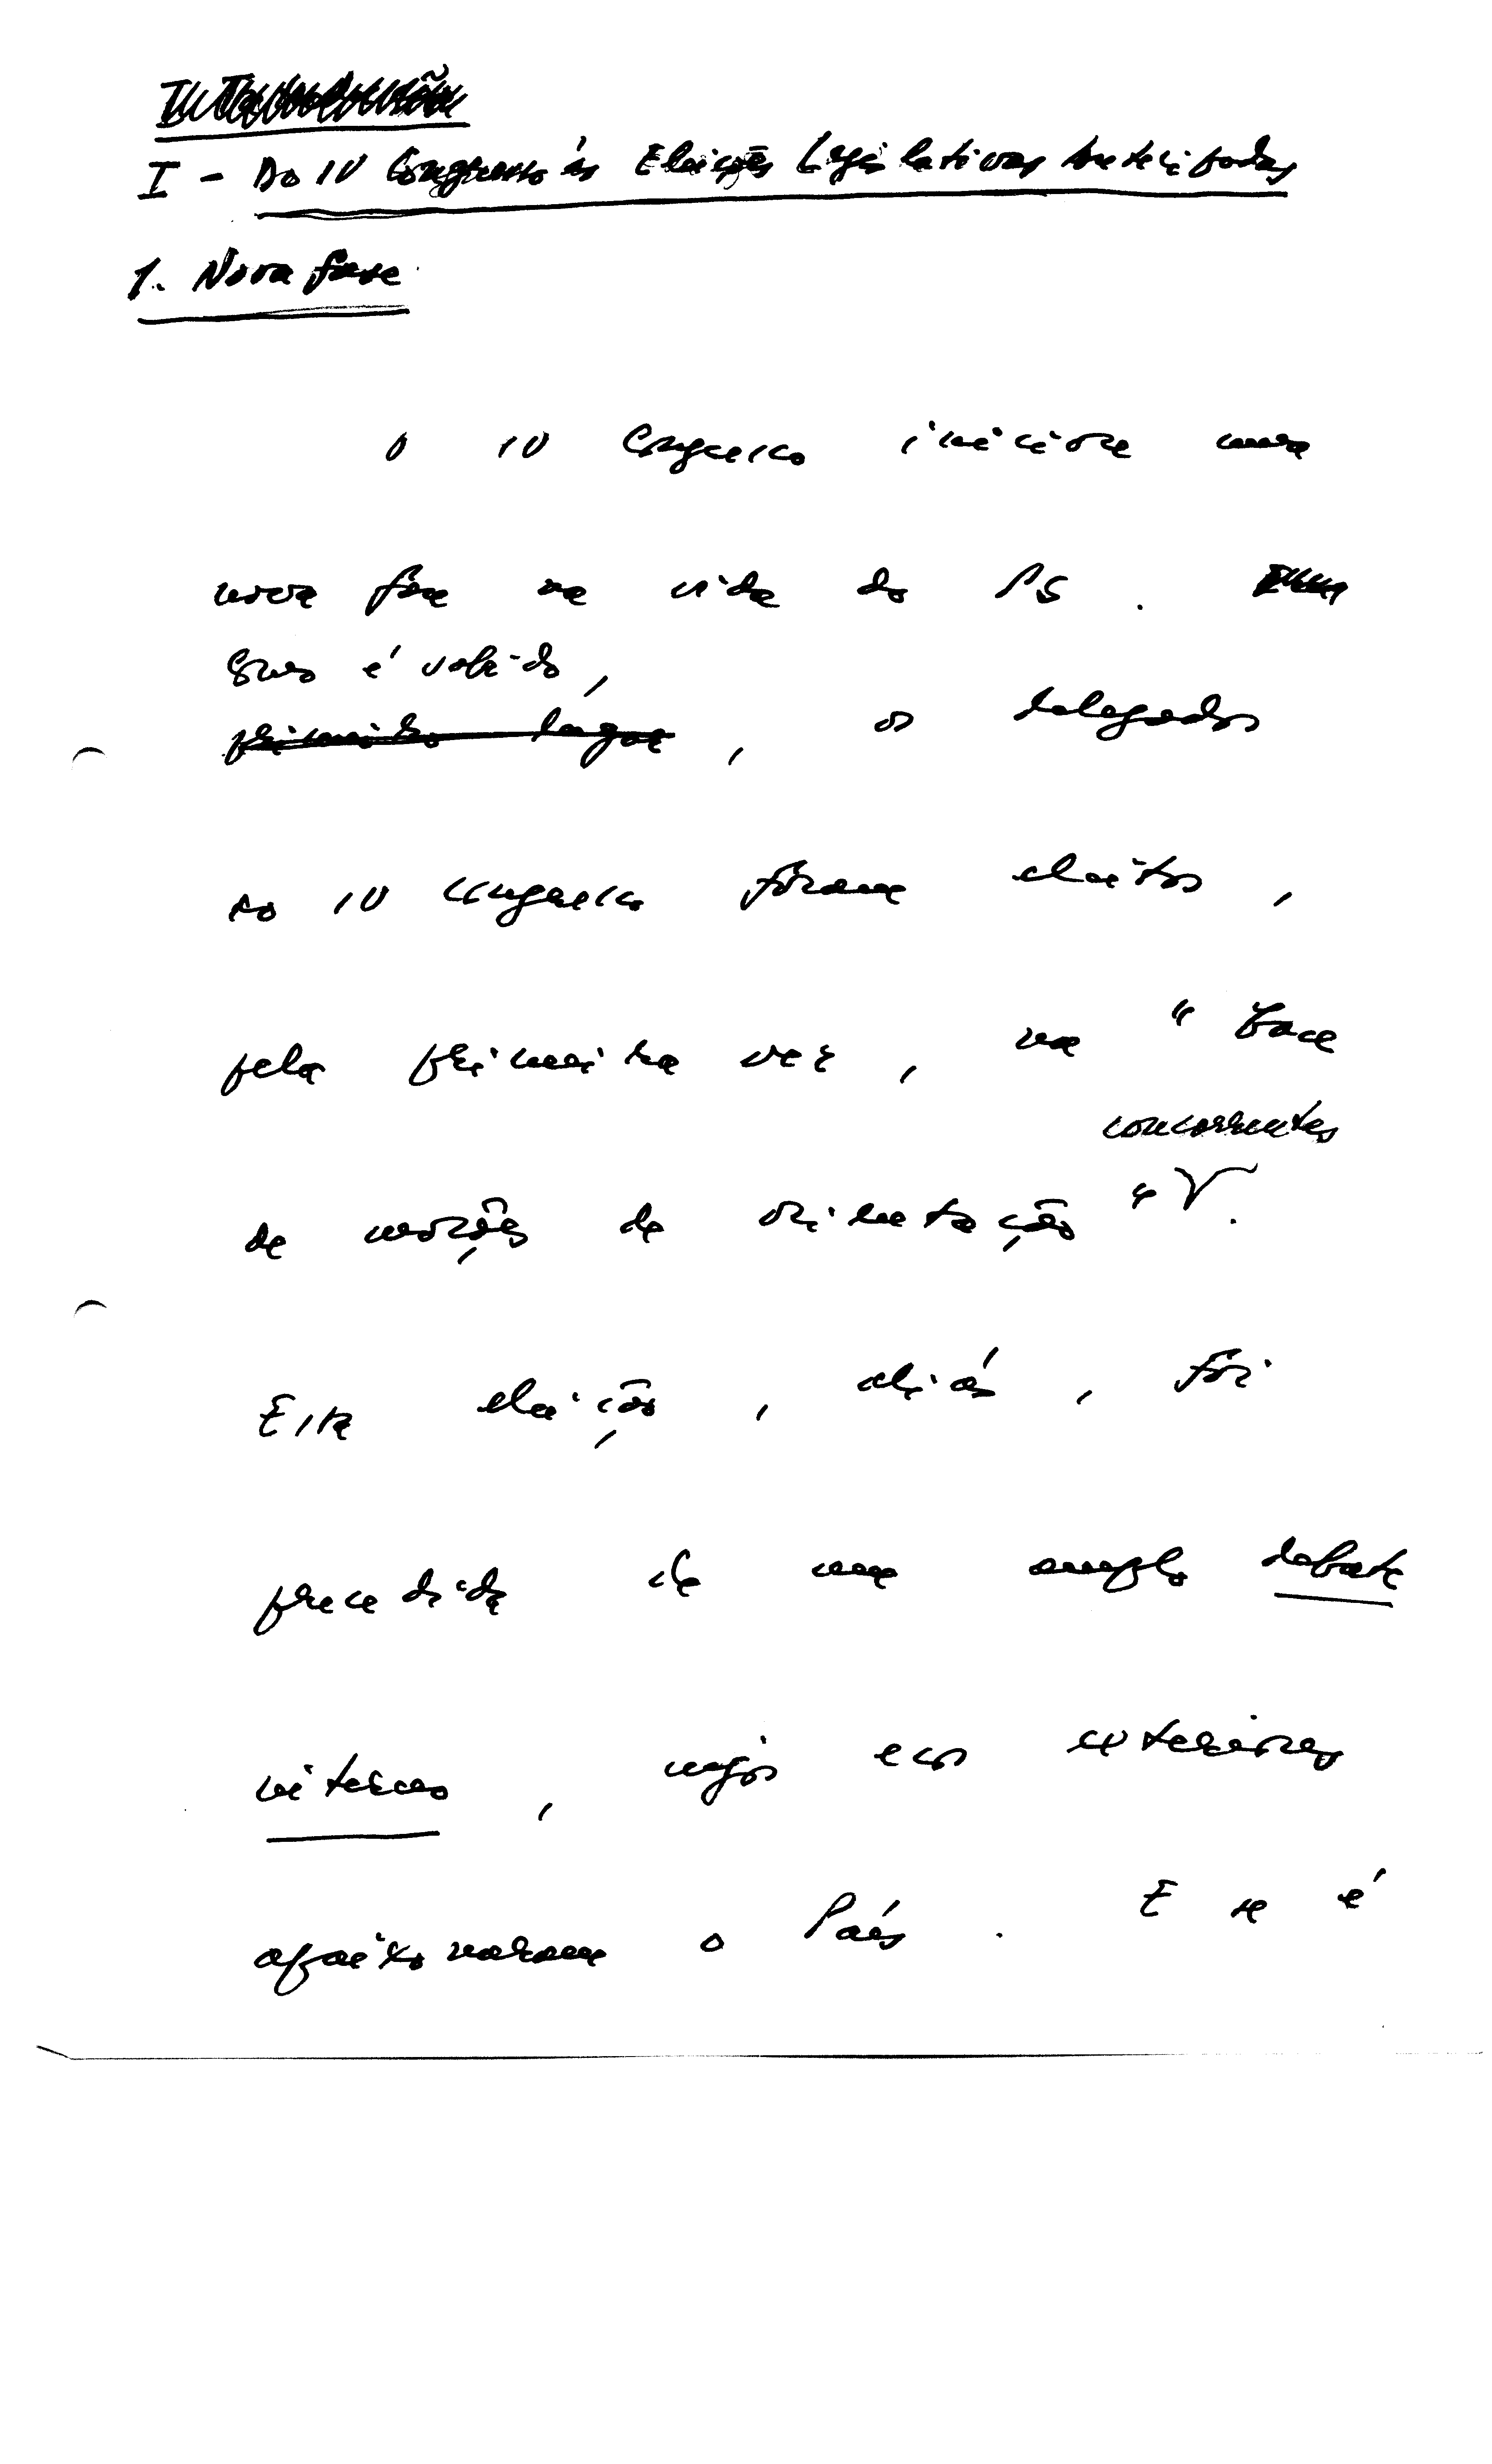 Introdução
I - Do IV Congresso às Eleições Legislativas Antecipadas
1. Nova fase
O IV Congresso iniciou uma
nova fase na vida do PS. Em
Como é sabido,
primeiro lugar, os delegados
ao IV Congresso foram eleitos,
pela primeira vez, na "base
concorrentes
de moções de orientação".
Esta eleição, aliás, foi
precedida de um amplo debate
interno, cujos ecos exteriores
apaixonaram o País. E se é